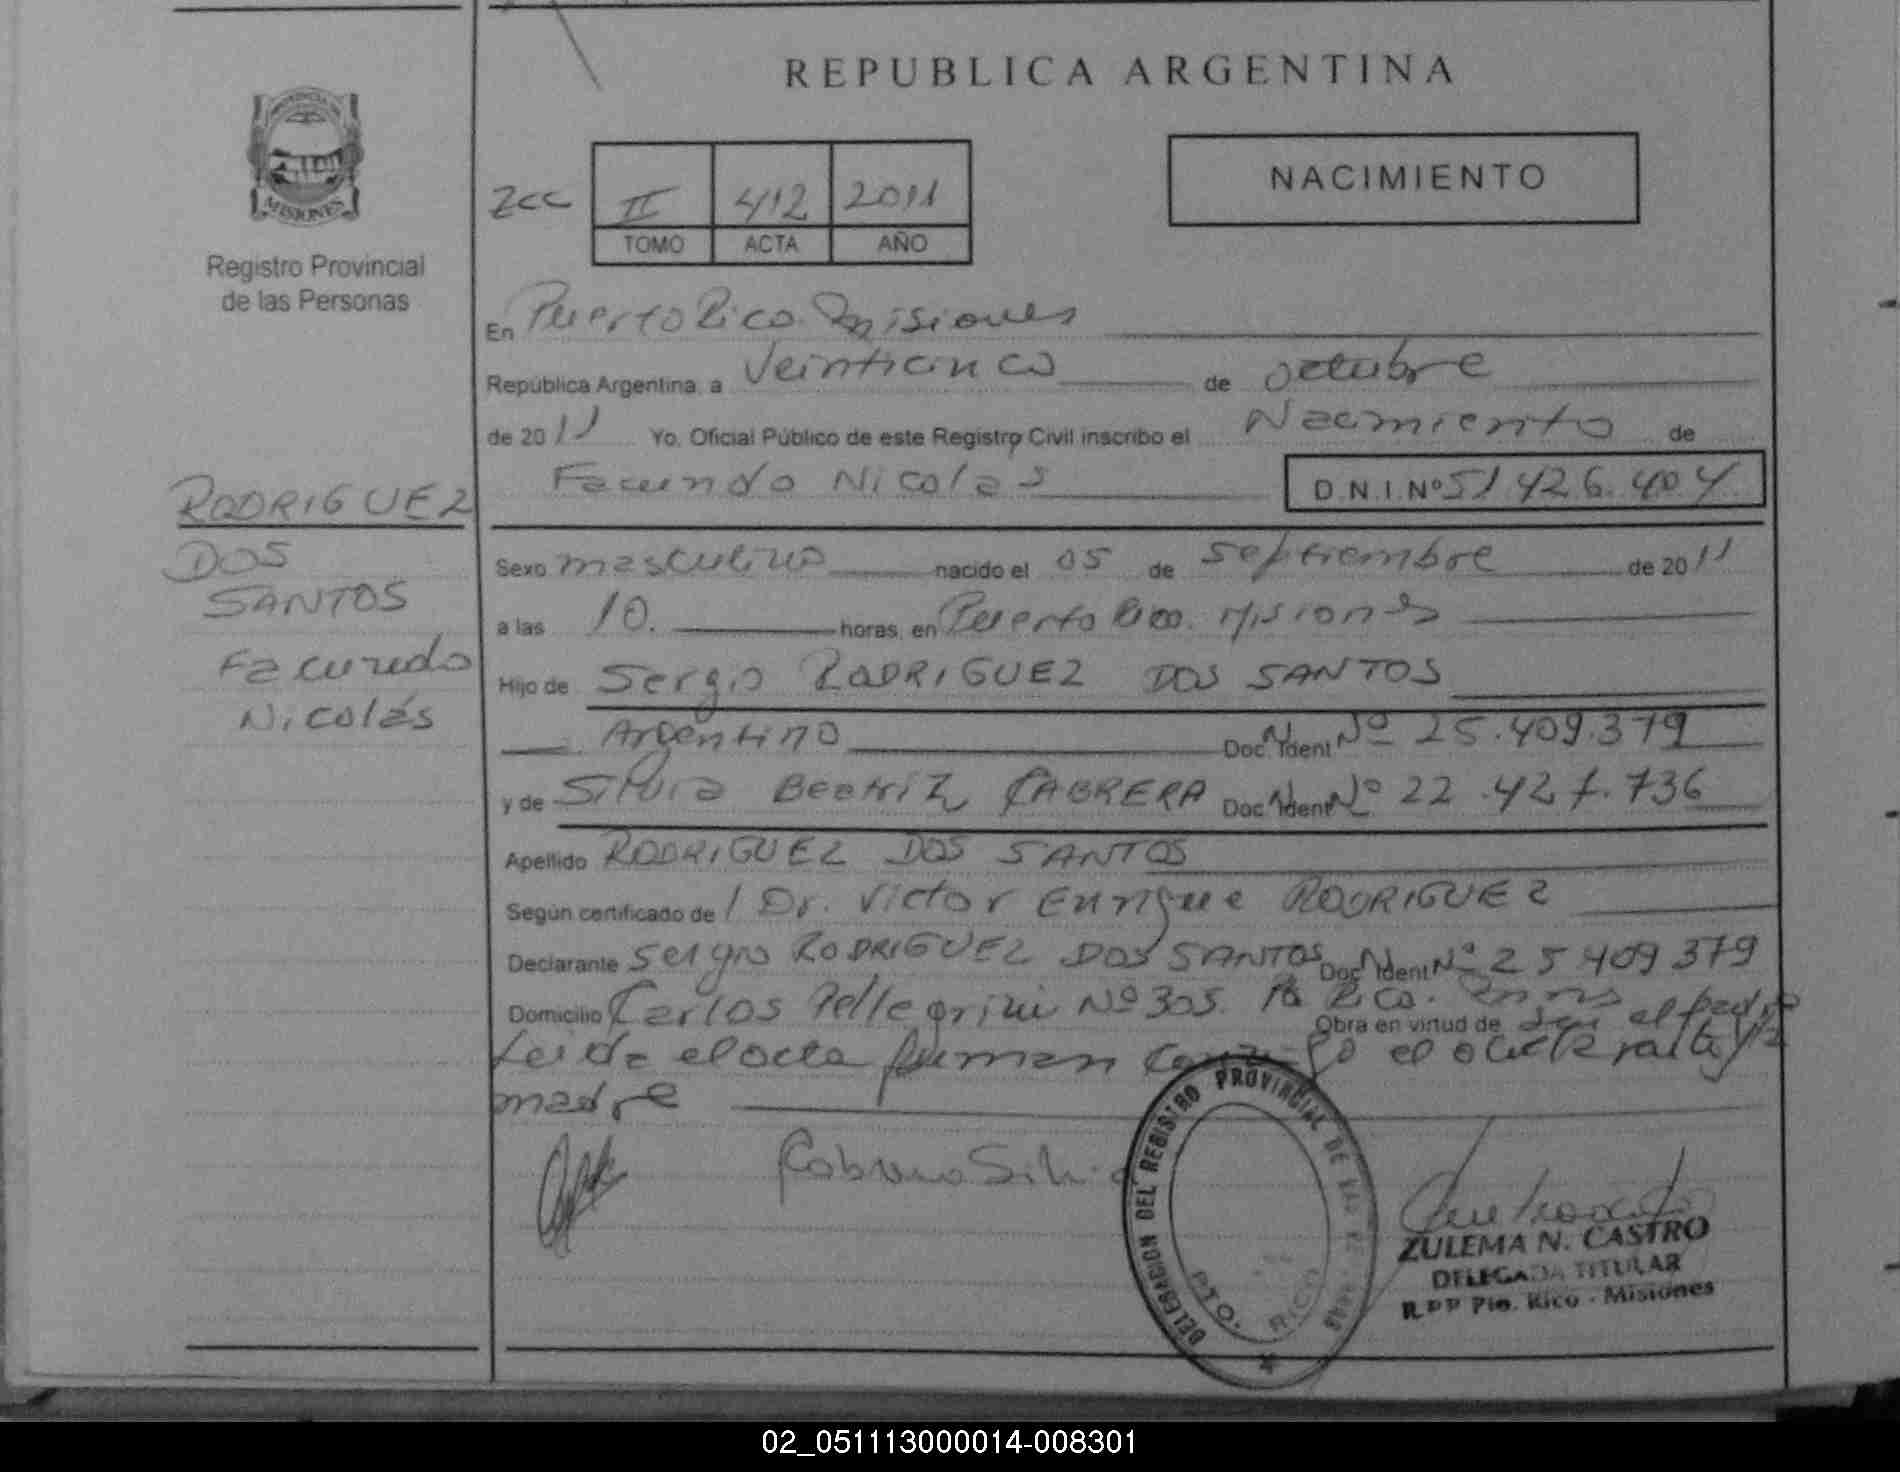 REPUBLICA ARGENTINA
MISIONES
Registro Provincial
de las Personas
NACIMIENTO
Zcc II 412 2011
TOMO ACTA AÑO
En Puerto Rico Misiones
República Argentina, a Veinticinco de octubre
de 2011 Yo, Oficial Público de este Registro Civil inscribo el Nacimiento de
Facundo Nicolas D.N.I.Nº 51.426.404
RODRIGUEZ
DOS
SANTOS
Facundo
Nicolás
Sexo masculino nacido el 05 de Septiembre de 2011
a las 10. horas, en Puerto Rico. Misiones
Hijo de Sergio RODRIGUEZ DOS SANTOS
Argentino Doc. Ident Nº 25.409.379
y de Silvia Beatriz CABRERA Doc. Ident Nº 22.427.736
Apellido RODRIGUEZ DOS SANTOS
Según certificado de / Dr. Victor Enrique RODRIGUEZ
Declarante Sergio RODRIGUEZ DOS SANTOS Doc. Ident Nº 25 409 379
Domicilio Carlos Pellegrini Nº 305. Pto Rico. Mnes
Obra en virtud de ser el padre
Leida el acta firman conmigo el declarante y la
madre
Cabrera Silvia
DELEGACION DEL REGISTRO PROVINCIAL DE LAS PERSONAS
PTO. RICO
ZULEMA N. CASTRO
DELEGADA TITULAR
R.P.P Pto. Rico - Misiones
02_051113000014-008301